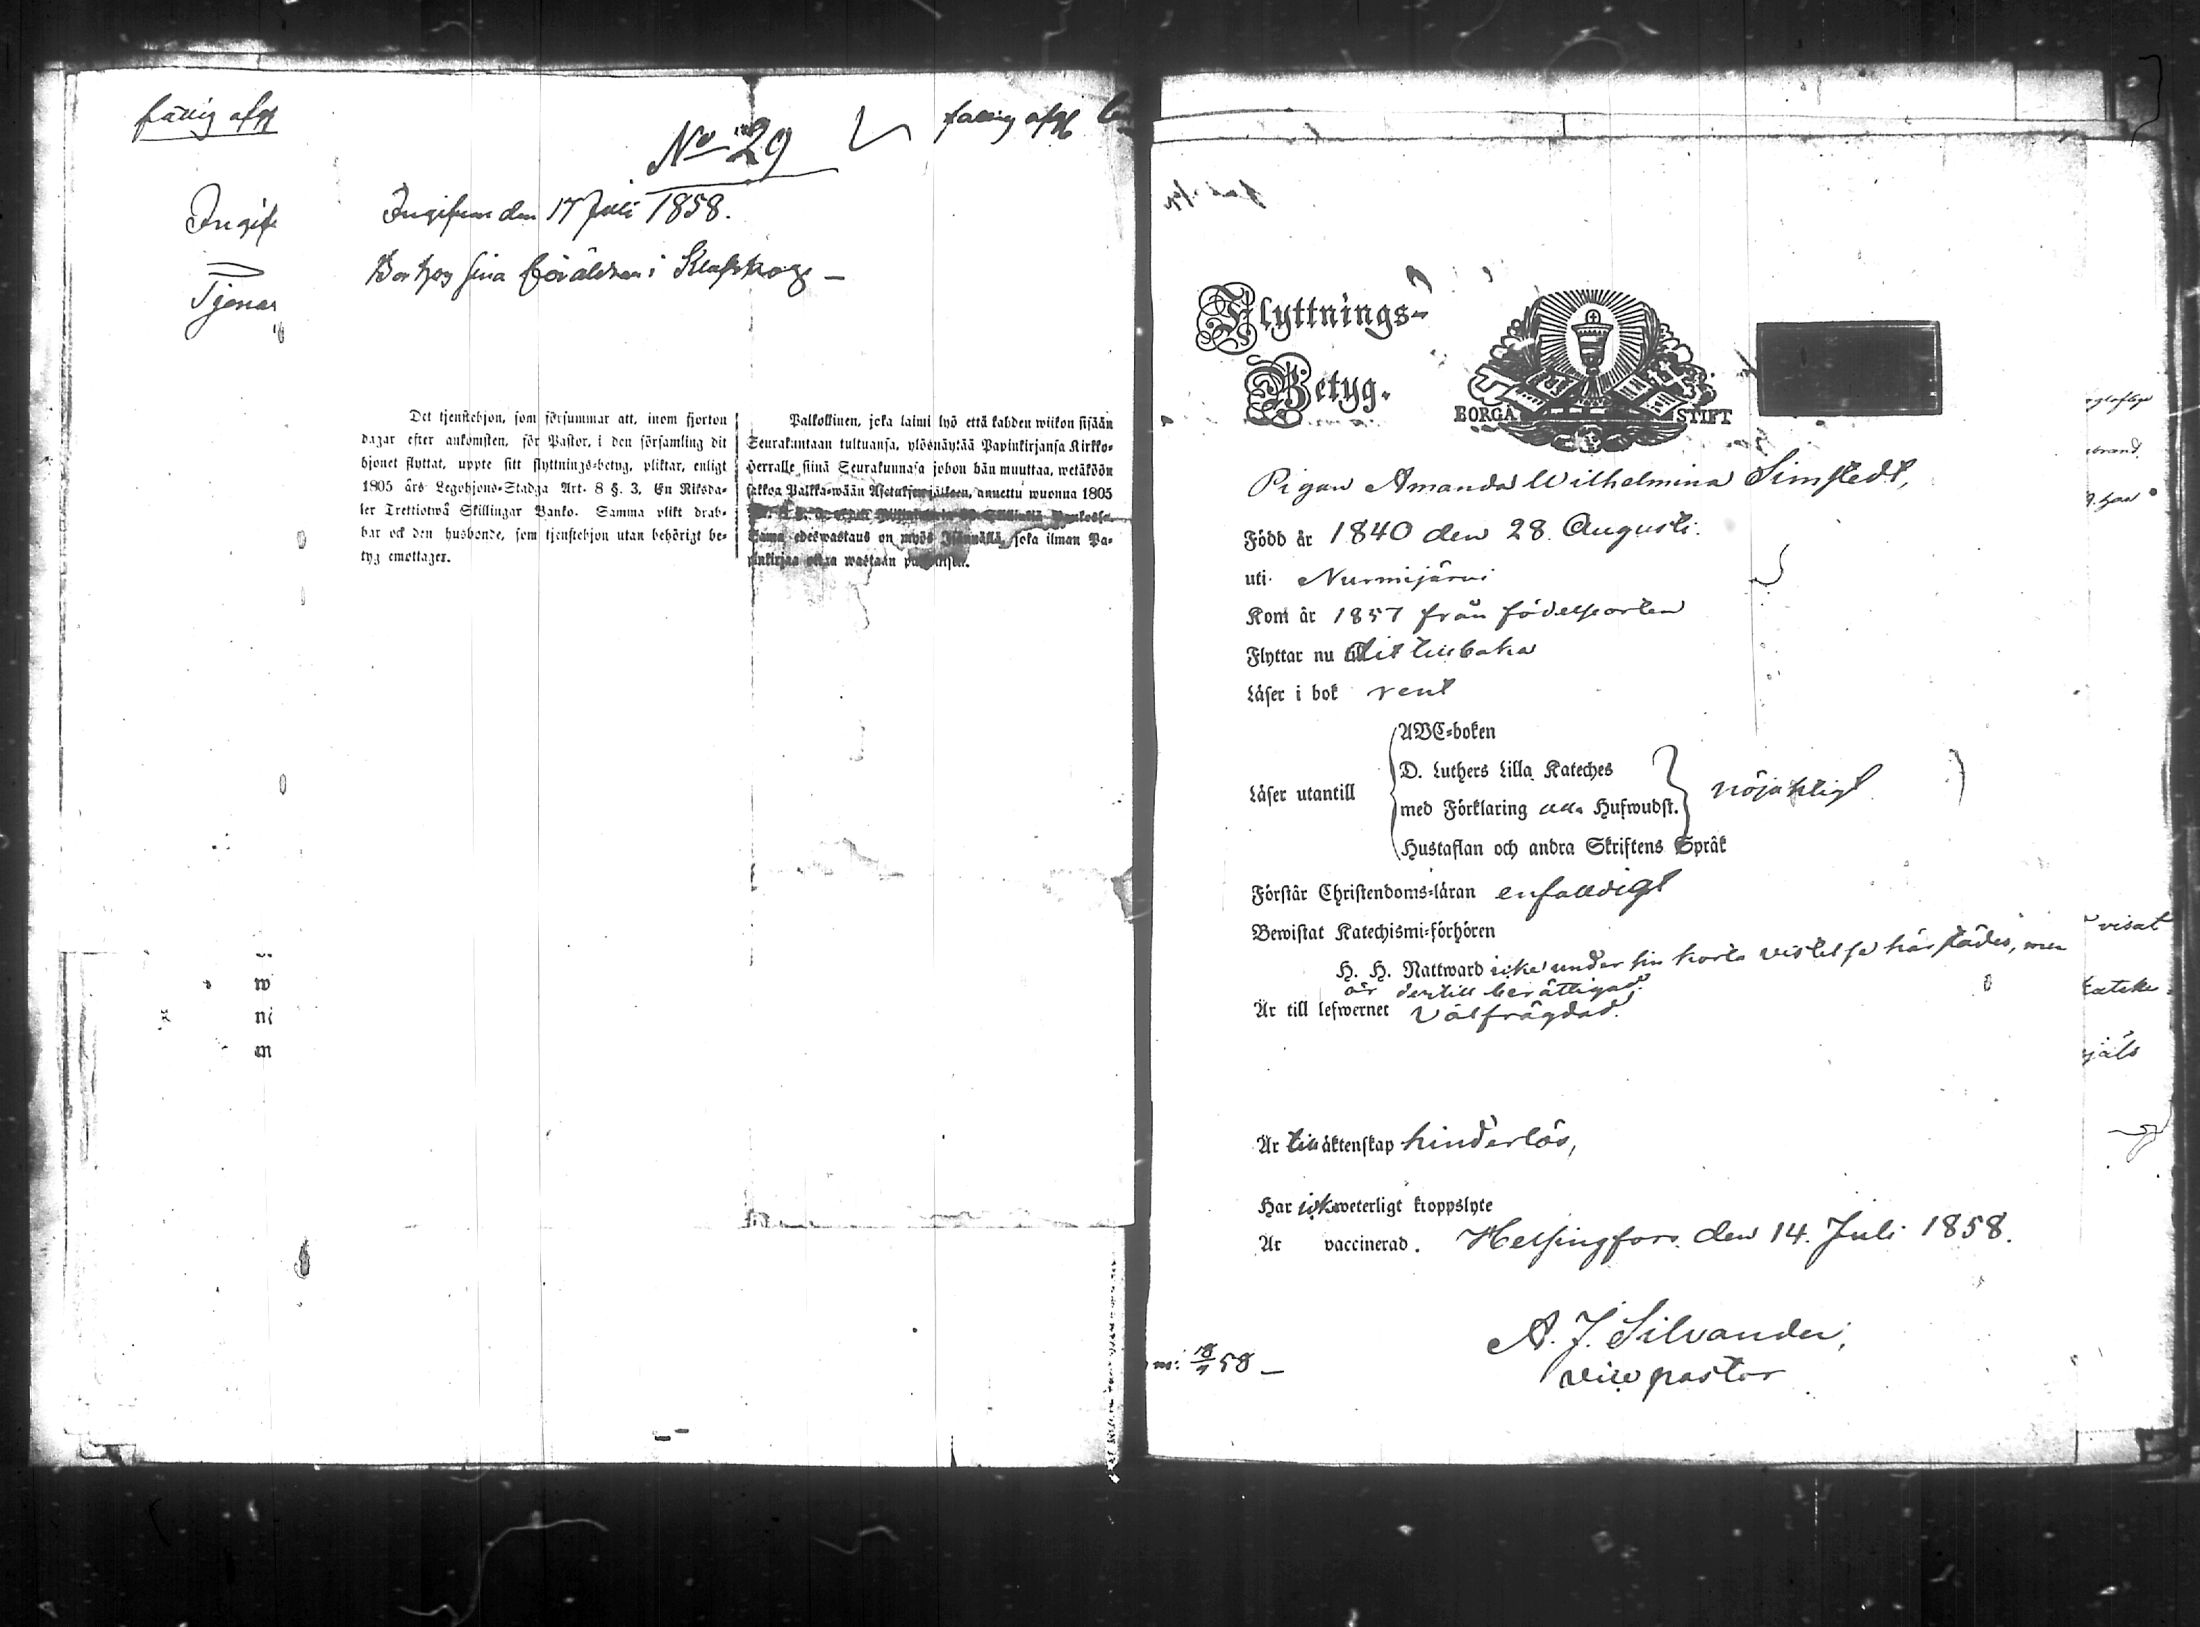 fattig afg
No 29
fattig afg
Ingif
Ingifven den 17 Juli 1858.
Bor hos sina föräldrar i
Tjenar
Det tjenstehjon, som försummar att, inom fjorton
dagar efter ankomsten, för Pastor, i den församling dit
hjonet flyttat, uppte sitt flyttnings-betyg, pliktar, enligt
1805 års Legohjons-Stadga Art. 8 §. 3. En Riksda-
ler Trettiotwå Skillingar Banko. Samma plikt drab-
bar ock den husbonde, som tjenstehjon utan behörigt be-
tyg emottager.
Palkollinen, joka laimi lyö että kahden wiikon sisään
Seurakuntaan tultuansa, ylösnäyttää Papinkirjansa Kirkko-
herralle siinä Seurakunnasa johon hän muuttaa, wetäköön
sakkoa Palkka-wään Asetuksen jälkeen, annettu wuonna 1805
Sama edeswastaus on myös Isännällä, joka ilman Pa-
pinkirjaa ottaa wastaan
w
ni
m
Flyttnings-
Betyg.
BORGÅ STIFT
Pigan Amanda Wilhelmina Simstedt,
Född år 1840 den 28. Augusti.
uti Nurmijärvi
Kom år 1857 från födelseorten
Flyttar nu dit tillbaka
Läser i bok rent
Läser utantill
ABC-boken
D. Luthers Lilla Kateches
med Förklaring Hufwudst.
Hustaflan och andra Skriftens Språk
nöjaktigt
Förstår Christendoms-läran enfaldigt
Bewistat Katechismi-förhören
H. H. Nattward icke under sin korta vistelse härstädes, men
är dertill berättigad.
Är till lefwernet Välfrägdad.
Är till äktenskap hinderlös,
Har icke weterligt kroppslyte
Är vaccinerad. Helsingfors den 14. Juli 1858.
A. J. Silvander,
vice pastor
visat